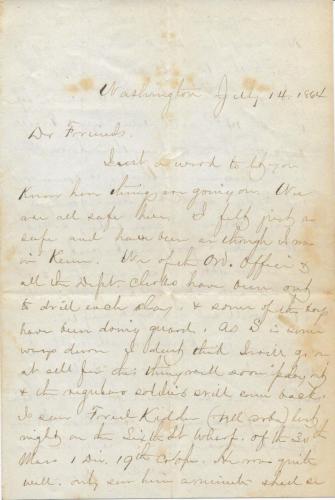 Washington July 14. 1864
Dr Friends.
Just a word to let you
know how things are going on. We
are all safe here I felt just as
safe and have been as though I was
in Keene. We of the Ord. Office &
all the Dept. Clerks have been out
to drill each day. & some of the boys
have been doing guard. As I is some
ways down I dont think I will go on
at all for this thing will soon
& the regular soldiers will come back.
I saw Fred last
night on the Sixth St Wharf. of the
Mass 1 Div. 19th Corps. He was quite
well. only saw him a minute